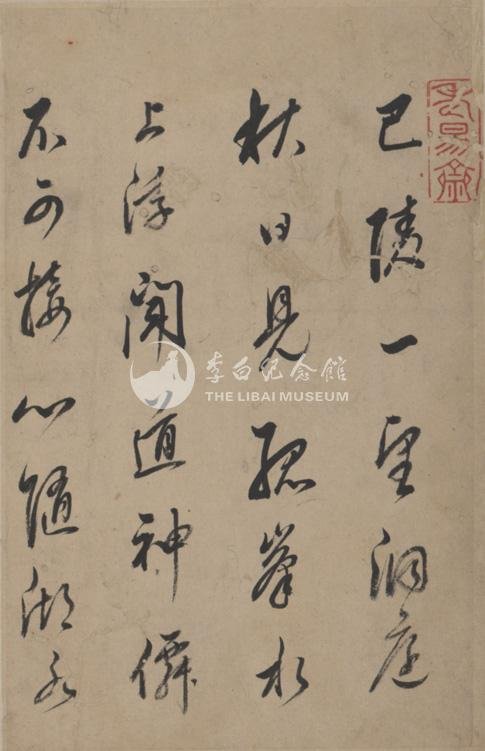 巴陵一望洞庭
秋日見孤峯水
上浮聞道神僊
不可接心隨湖水
李白纪念館
THE LIBAI MUSEUM